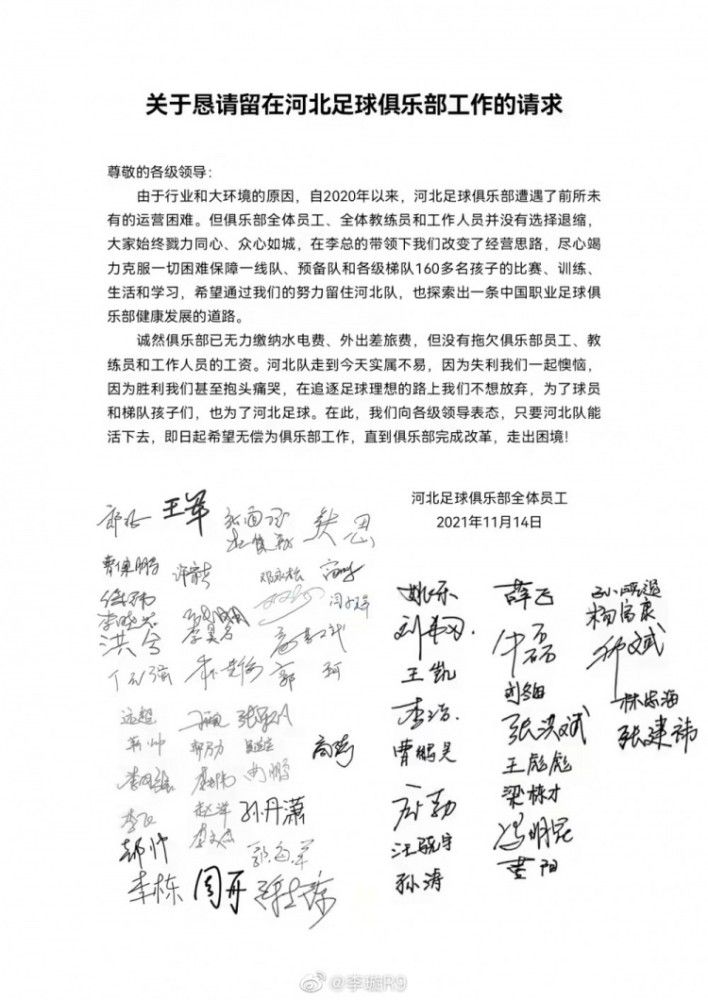 关于恳请留在河北足球俱乐部工作的请求
尊敬的各级领导:
由于行业和大环境的原因，自2020年以来，河北足球俱乐部遭遇了前所未
有的运营困难。但俱乐部全体员工、全体教练员和工作人员并没有选择退缩，
大家始终戮力同心、众心如城，在李总的带领下我们改变了经营思路，尽心竭
力克服一切困难保障一线队、预备队和各级梯队160多名孩子的比赛、训练、
生活和学习，希望通过我们的努力留住河北队，也探索出一条中国职业足球俱
乐部健康发展的道路。
诚然俱乐部已无力缴纳水电费、外出差旅费，但没有拖欠俱乐部员工、教
练员和工作人员的工资。河北队走到今天实属不易，因为失利我们一起懊恼，
因为胜利我们甚至抱头痛哭，在追逐足球理想的路上我们不想放弃，为了球员
和梯队孩子们，也为了河北足球。在此，我们向各级领导表态，只要河北队能
活下去，即日起希望无偿为俱乐部工作，直到俱乐部完成改革，走出困境!
河北足球俱乐部全体员工
2021年11月14日
王军
洪兮
郭 珂
远超
高琦
孙丹潇
李栋 周丹
姚乐
王凯
李浩
曹鹏昊
孙涛
薛飞
牛磊
张洪斌
王彪彪
梁栋才
冯明昆
黄阳
杨富康
林忠海
张建祎
@李璇R9